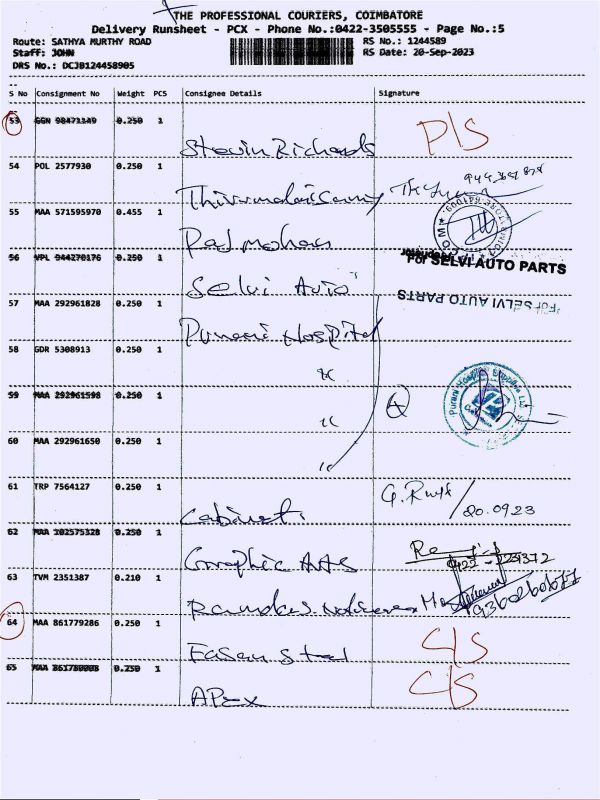 THE PROFESSIONAL COURIERS, COIMBATORE
Delivery Runsheet - PCX - Phone No.:0422-3505555 - Page No.:5
Route: SATHYA MURTHY ROAD RS No.: 1244589
Staff: JOHN RS Date: 20-Sep-2023
DRS No.: DCJB124458905
S No Consignment No Weight PCS Consignee Details Signature
53 GGN 0.250 1 P/S
Stevin Richards
54 POL 2577930 0.250 1
Thirumalaisamy
55 MAA 571595970 0.455 1
Rajmohan
56 VPL 944270176 0.250 1 For SELVI AUTO PARTS
Selvi Auto
57 MAA 292961828 0.250 1 For SELVI AUTO PARTS
Purani Hospital
58 GDR 5308913 0.250 1
"
59 MAA 292961598 0.250 1
"
60 MAA 292961650 0.250 1
"
61 TRP 7564127 0.250 1 20.09.23
Cabinet
62 MAA 102575328 0.250 1
Graphic Arts
63 TVM 2351387 0.210 1
Ramdas
64 MAA 861779286 0.250 1 C/S
Easan Steel
65 MAA 0.250 1 C/S
APEX